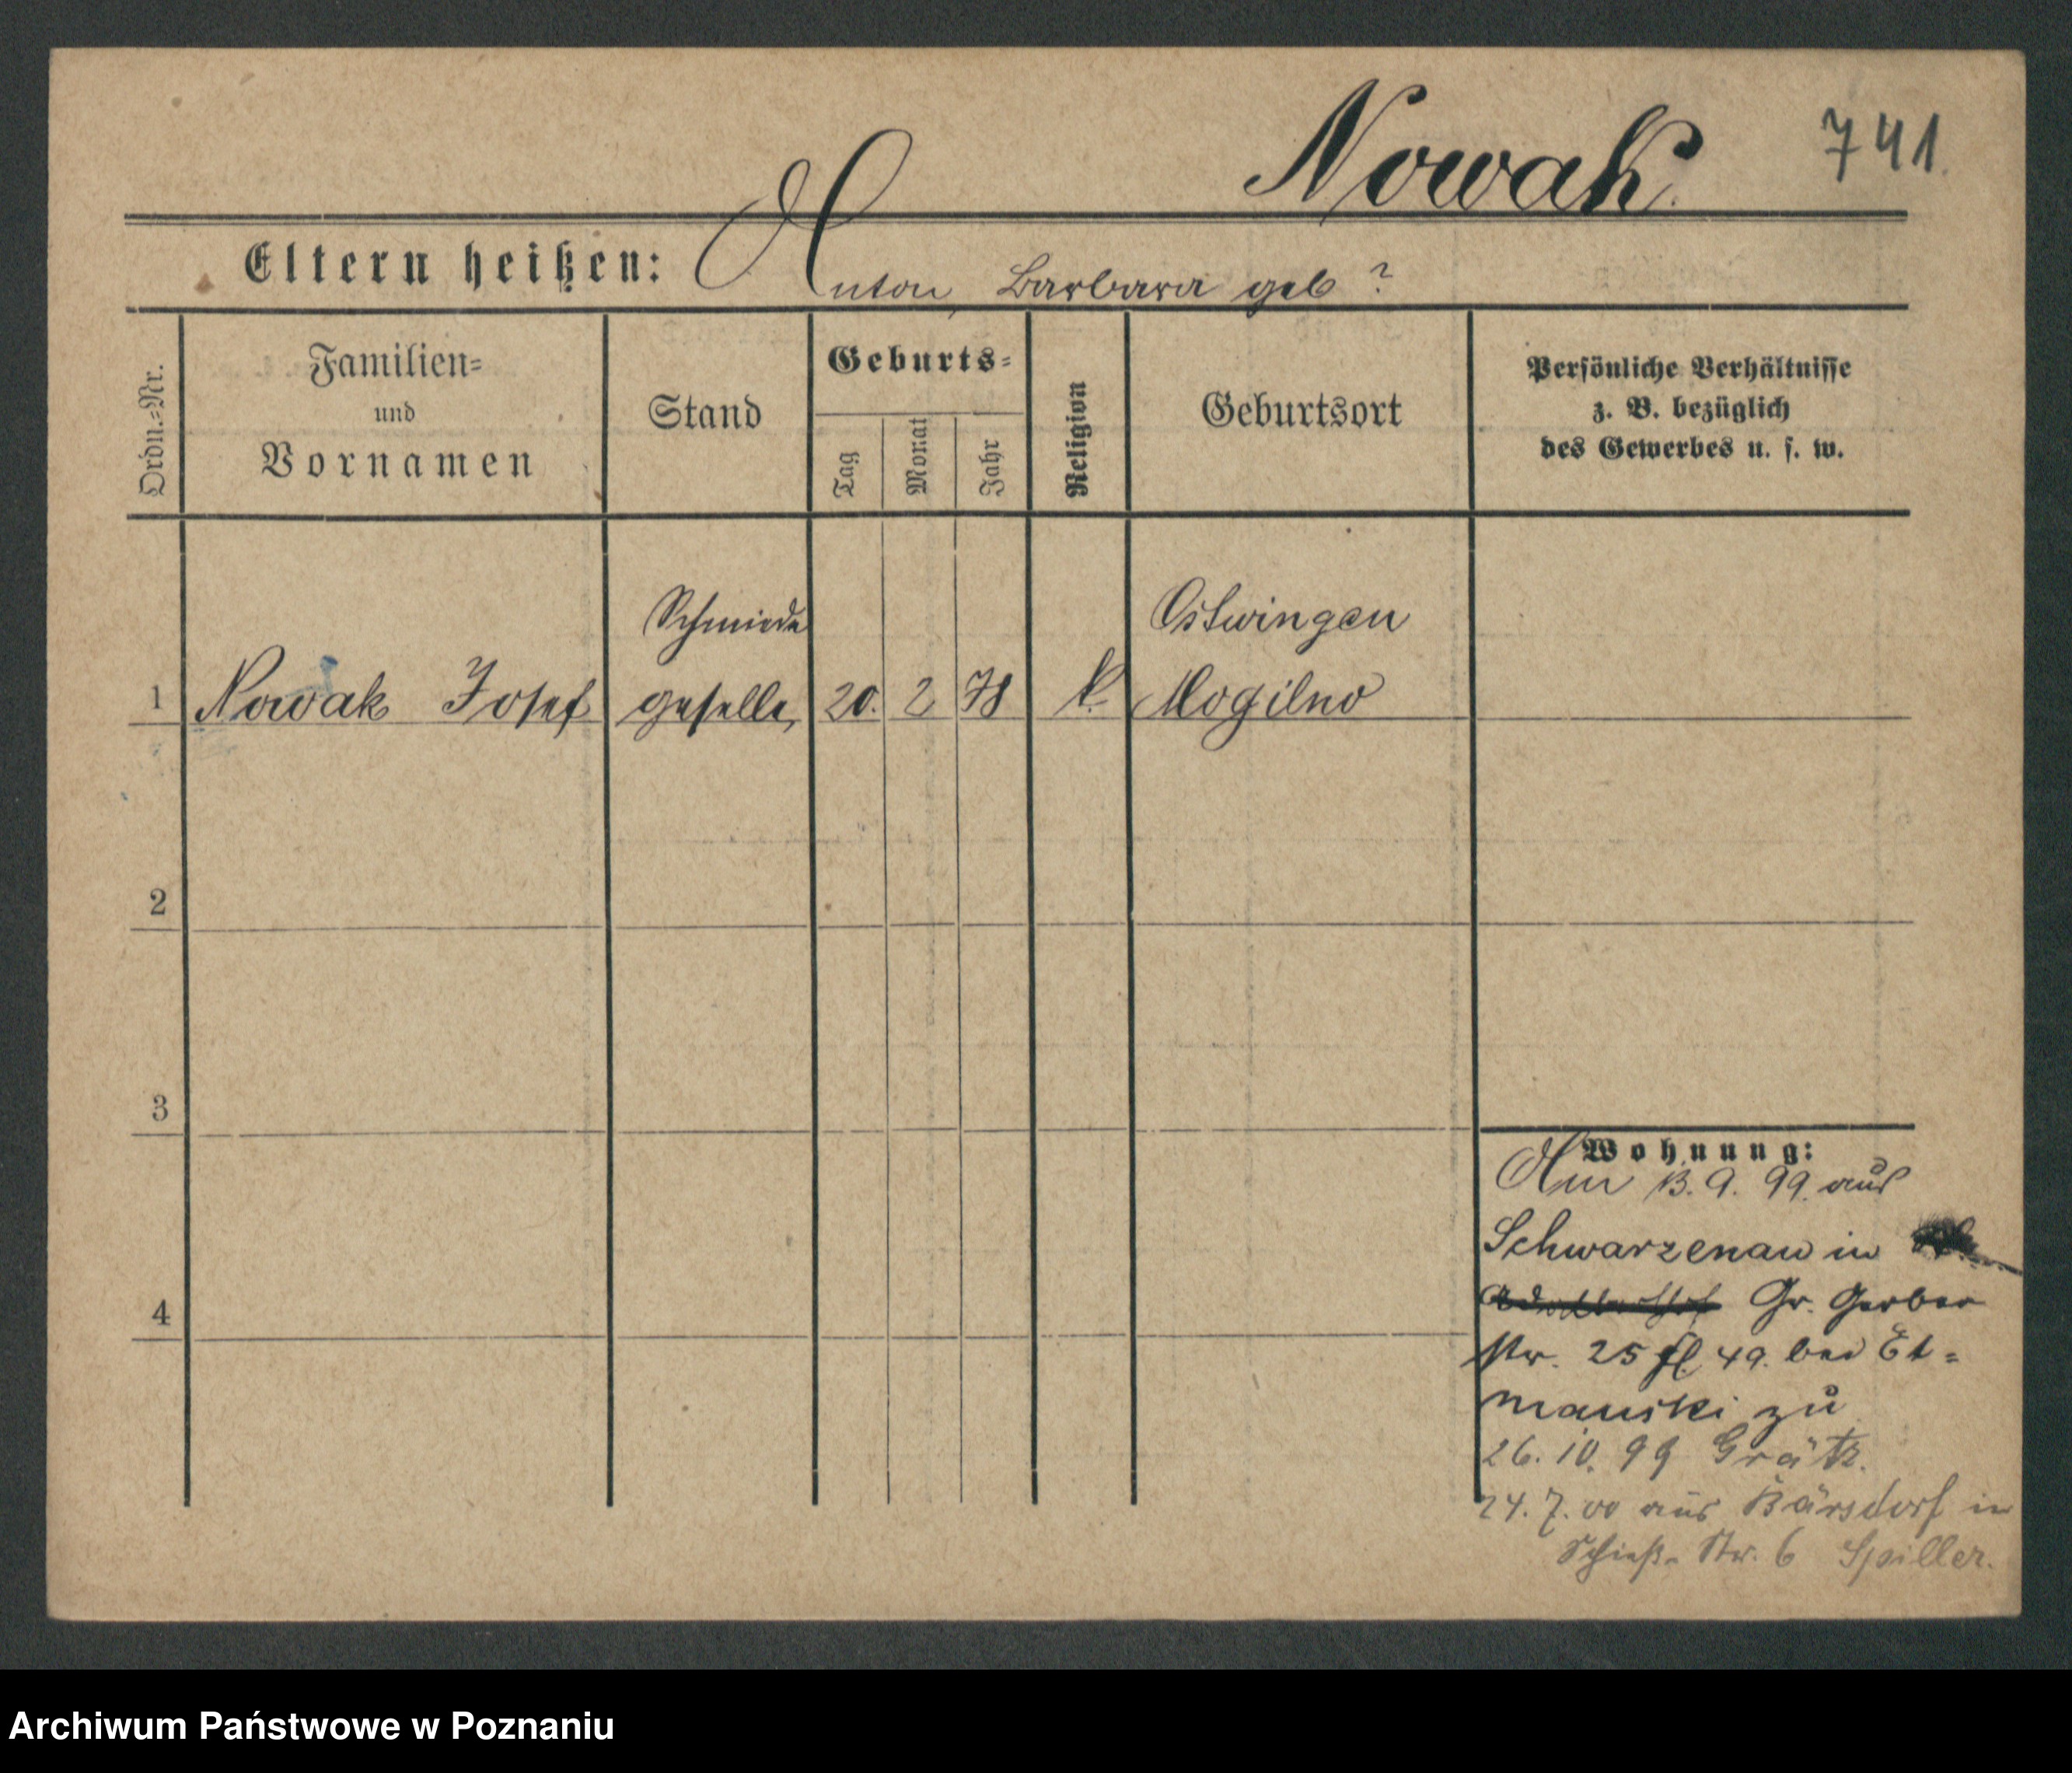 Nowak.
741.
Eltern heißen: Anton, Barbara geb ?
Ordn.-Nr.
Familien-
und
Vornamen
Stand
Geburts-
Tag
Monat
Jahr
Religion
Geburtsort
Persönliche Verhältnisse
z. B. bezüglich
des Gewerbes u. s. w.
Schmiede Ostwingen
1 Nowak Josef geselle, 20. 2 78 k. Mogilno
2
3
4
Wohnung:
Am 13. 9. 99. aus
Schwarzenau in
Gr. Gerber
Str. 25 fl. 49. bei Et=
manski zu
26. 10. 99 Grätz.
24. 7. 00 aus Bärsdorf in
Schieß- Str. 6 Spiller.
Archiwum Państwowe w Poznaniu